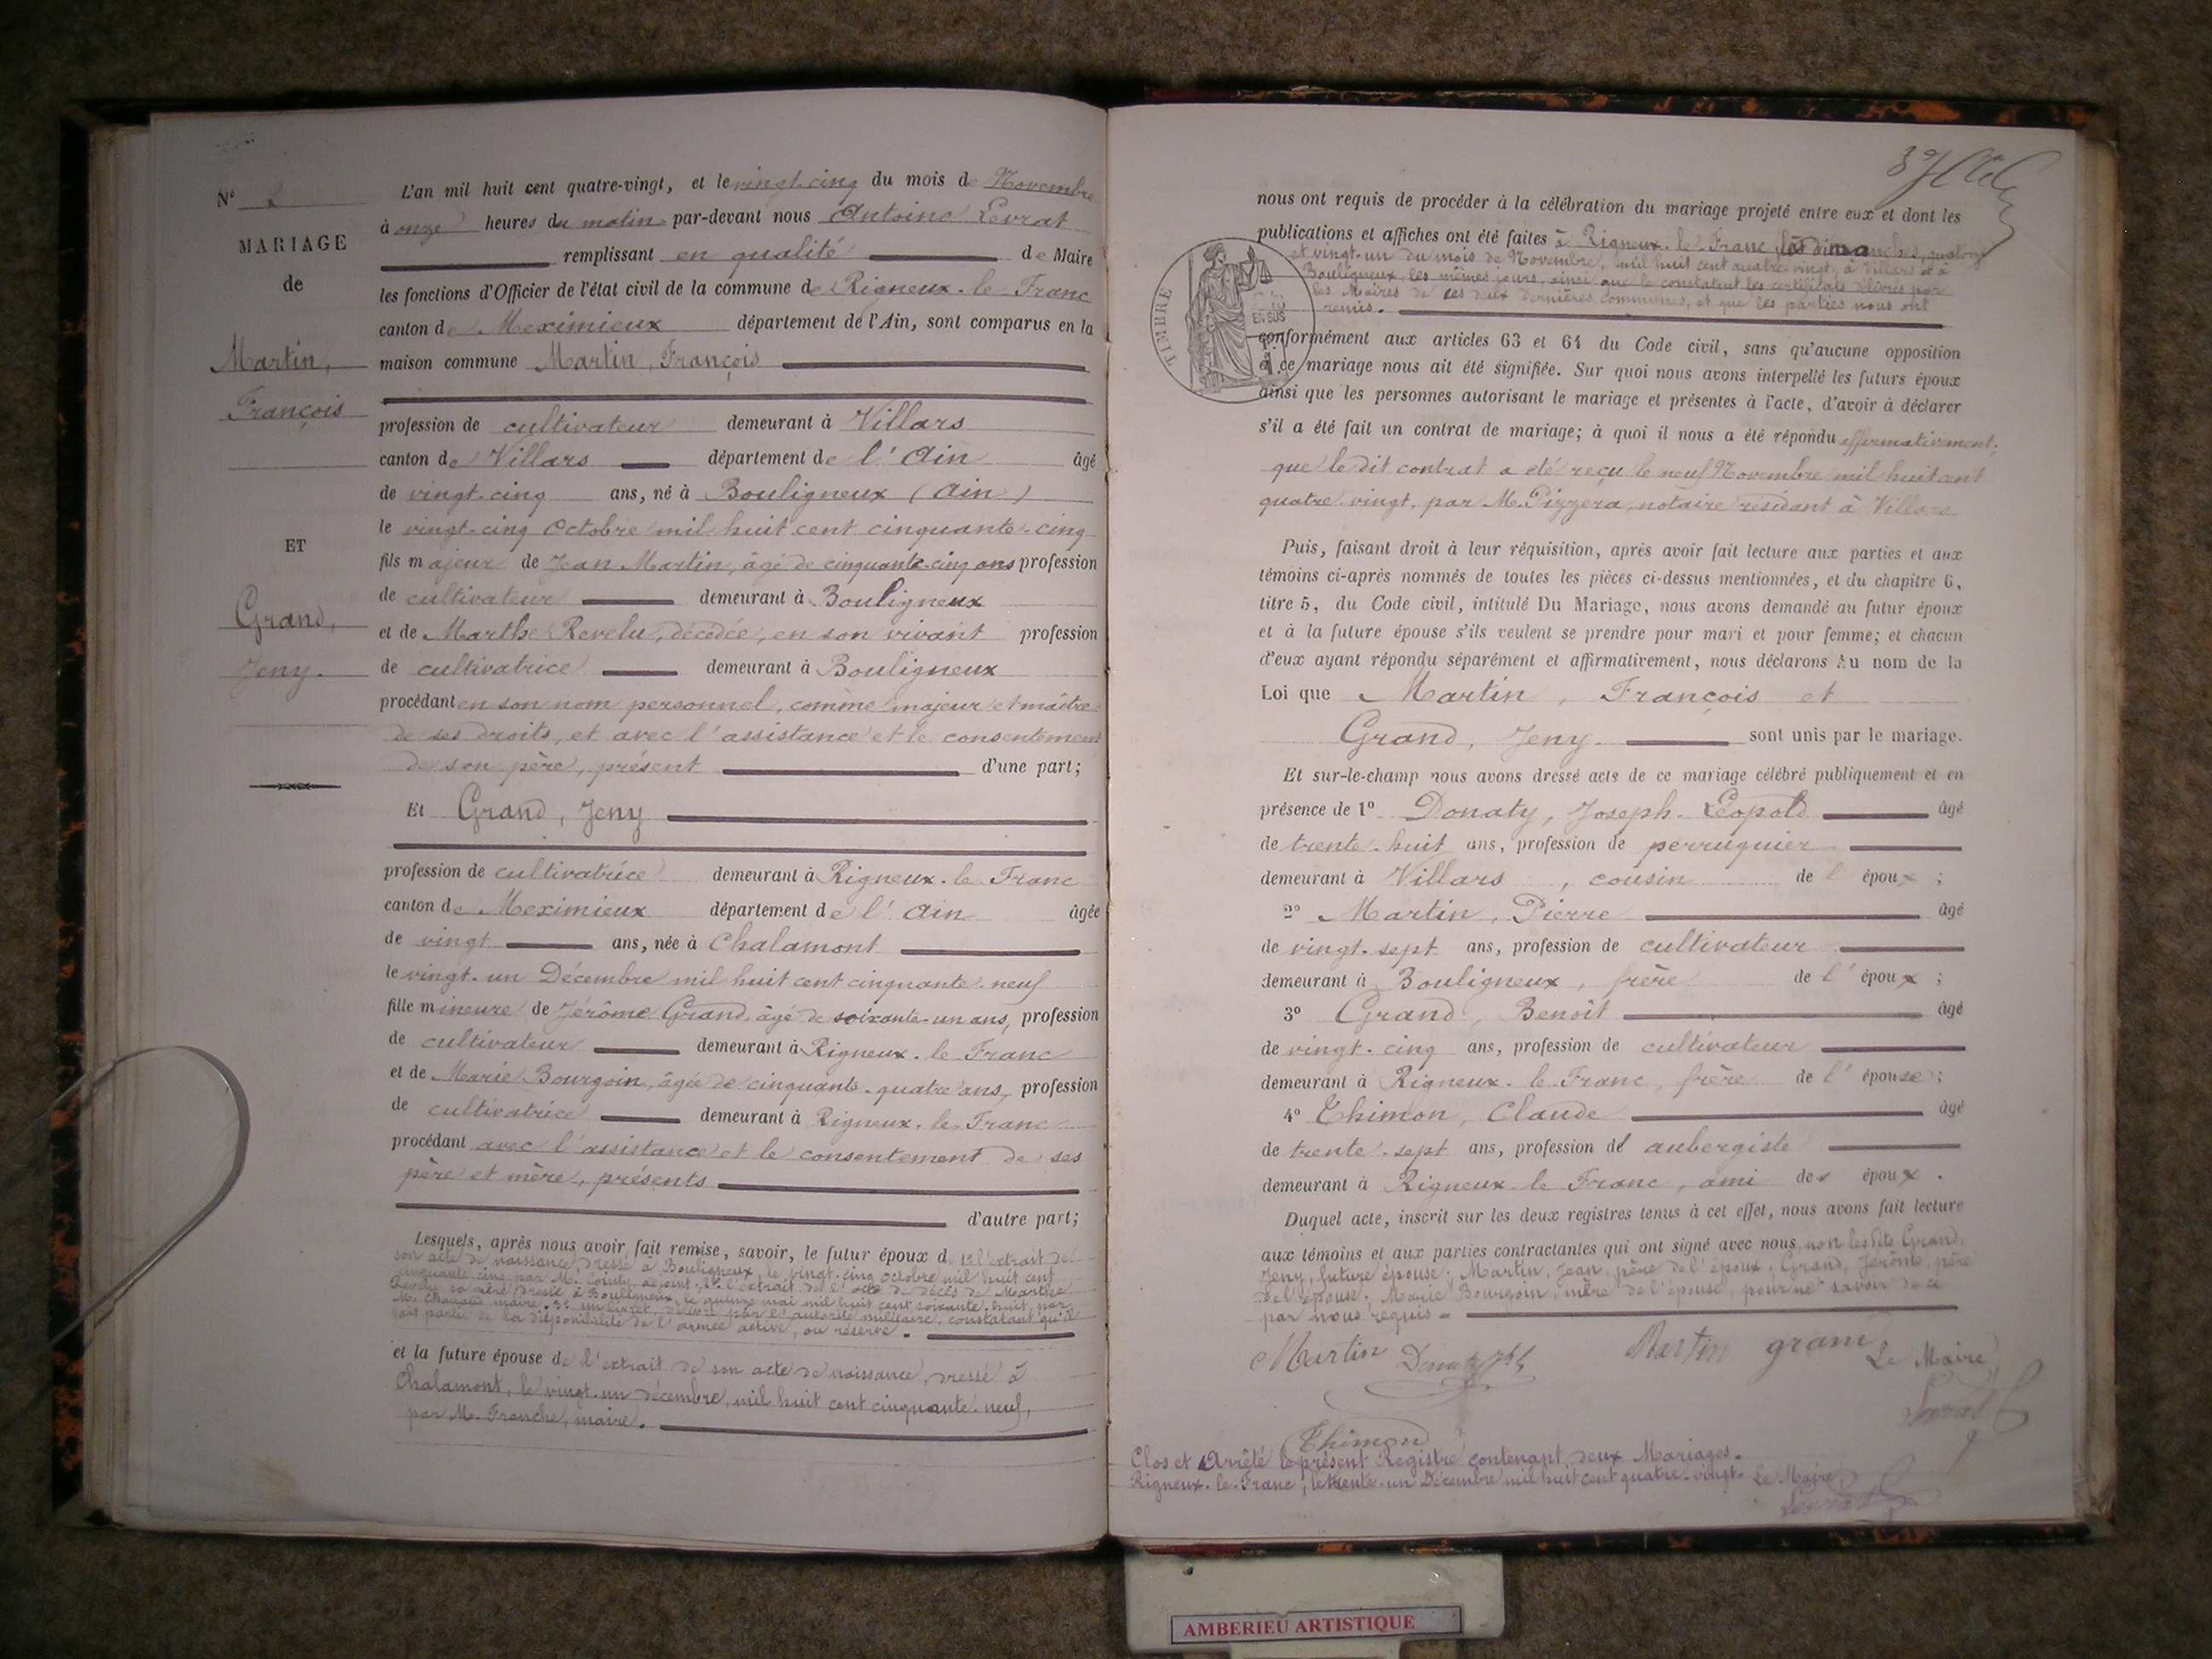 N° 2
MARIAGE
de
Martin,
François
ET
Grand,
Jeny.
L'an mil huit cent quatre-vingt, et le vingt-cinq du mois de Novembre
à onze heures du matin par-devant nous Antoine Levrat
remplissant en qualité de Maire
les fonctions d'Officier de l'état civil de la commune de Rigneux-le-Franc
canton de Meximieux département de l'Ain, sont comparus en la
maison commune Martin, François
profession de cultivateur demeurant à Villars
canton de Villars département de l'Ain âgé
de vingt-cinq ans, né à Bouligneux (Ain)
le vingt-cinq Octobre mil huit cent cinquante-cinq
fils majeur de Jean Martin, âgé de cinquante-cinq ans profession
de cultivateur demeurant à Bouligneux
et de Marthe Revelu, décédée, en son vivant profession
de cultivatrice demeurant à Bouligneux
procédant en son nom personnel, comme majeur et maître
de ses droits, et avec l'assistance et le consentement
de son père, présent d'une part;
Et Grand, Jeny
profession de cultivatrice demeurant à Rigneux-le-Franc
canton de Meximieux département de l'Ain âgée
de vingt ans, née à Chalamont
le vingt-un Décembre mil huit cent cinquante-neuf
fille mineure de Jérôme Grand, âgé de soixante-un ans, profession
de cultivateur demeurant à Rigneux-le-Franc
et de Marie Bourgoin, âgée de cinquante-quatre ans, profession
de cultivatrice demeurant à Rigneux-le-Franc
procédant avec l'assistance et le consentement de ses
père et mère, présents
d'autre part;
Lesquels, après nous avoir fait remise, savoir, le futur époux de 1° l'extrait de
son acte de naissance dressé à Bouligneux, le vingt-cinq octobre mil huit cent
cinquante-cinq par M. adjoint. 2° l'extrait de l'acte de décès de Marthe
sa mère dressé à Bouligneux, le quinze mai mil huit cent soixante-huit, par
M. maire. 3° un livret, délivré par l'autorité militaire, constatant qu'il
fait partie de la disponibilité de l'armée active, ou réserve.
et la future épouse de l'extrait de son acte de naissance, dressé à
Chalamont, le vingt-un décembre, mil huit cent cinquante-neuf,
par M. Franche, maire.
nous ont requis de procéder à la célébration du mariage projeté entre eux et dont les
publications et affiches ont été faites à Rigneux-le-Franc les dimanches, quatorze
et vingt-un du mois de Novembre, mil huit cent quatre-vingt, à Villars et à
Bouligneux, les mêmes jours, ainsi que le constatent les certificats délivrés par
les Maires de ces deux dernières communes, et que les parties nous ont
remis.
TIMBRE
EN SUS
conformément aux articles 63 et 64 du Code civil, sans qu'aucune opposition
à ce mariage nous ait été signifiée. Sur quoi nous avons interpellé les futurs époux
ainsi que les personnes autorisant le mariage et présentes à l'acte, d'avoir à déclarer
s'il a été fait un contrat de mariage; à quoi il nous a été répondu affirmativement;
que le dit contrat a été reçu le neuf Novembre mil huit cent
quatre-vingt, par M. Pizzera, notaire résidant à Villars
Puis, faisant droit à leur réquisition, après avoir fait lecture aux parties et aux
témoins ci-après nommés de toutes les pièces ci-dessus mentionnées, et du chapitre 6,
titre 5, du Code civil, intitulé Du Mariage, nous avons demandé au futur époux
et à la future épouse s'ils veulent se prendre pour mari et pour femme; et chacun
d'eux ayant répondu séparément et affirmativement, nous déclarons Au nom de la
Loi que Martin, François et
Grand, Jeny sont unis par le mariage.
Et sur-le-champ nous avons dressé acte de ce mariage célébré publiquement et en
présence de 1° Donaty, Joseph-Léopold âgé
de trente-huit ans, profession de perruquier
demeurant à Villars, cousin de l'époux;
2° Martin, Pierre âgé
de vingt-sept ans, profession de cultivateur
demeurant à Bouligneux, frère de l'époux;
3° Grand, Benoît âgé
de vingt-cinq ans, profession de cultivateur
demeurant à Rigneux-le-Franc, frère de l'épouse;
4° Thimon, Claude âgé
de trente-sept ans, profession de aubergiste
demeurant à Rigneux-le-Franc, ami des époux.
Duquel acte, inscrit sur les deux registres tenus à cet effet, nous avons fait lecture
aux témoins et aux parties contractantes qui ont signé avec nous, non lesdits Grand,
Jeny, future épouse; Martin, Jean, père de l'époux; Grand, Jérôme, père
de l'épouse; Marie Bourgoin, mère de l'épouse, pour ne savoir de ce
par nous requis.
Martin Donaty Martin grand Le Maire
Levrat
Thimon
Clos et Arrêté le présent Registre contenant deux Mariages.
Rigneux-le-Franc, le trente-un Décembre mil huit cent quatre-vingt. Le Maire
Levrat
AMBERIEU ARTISTIQUE